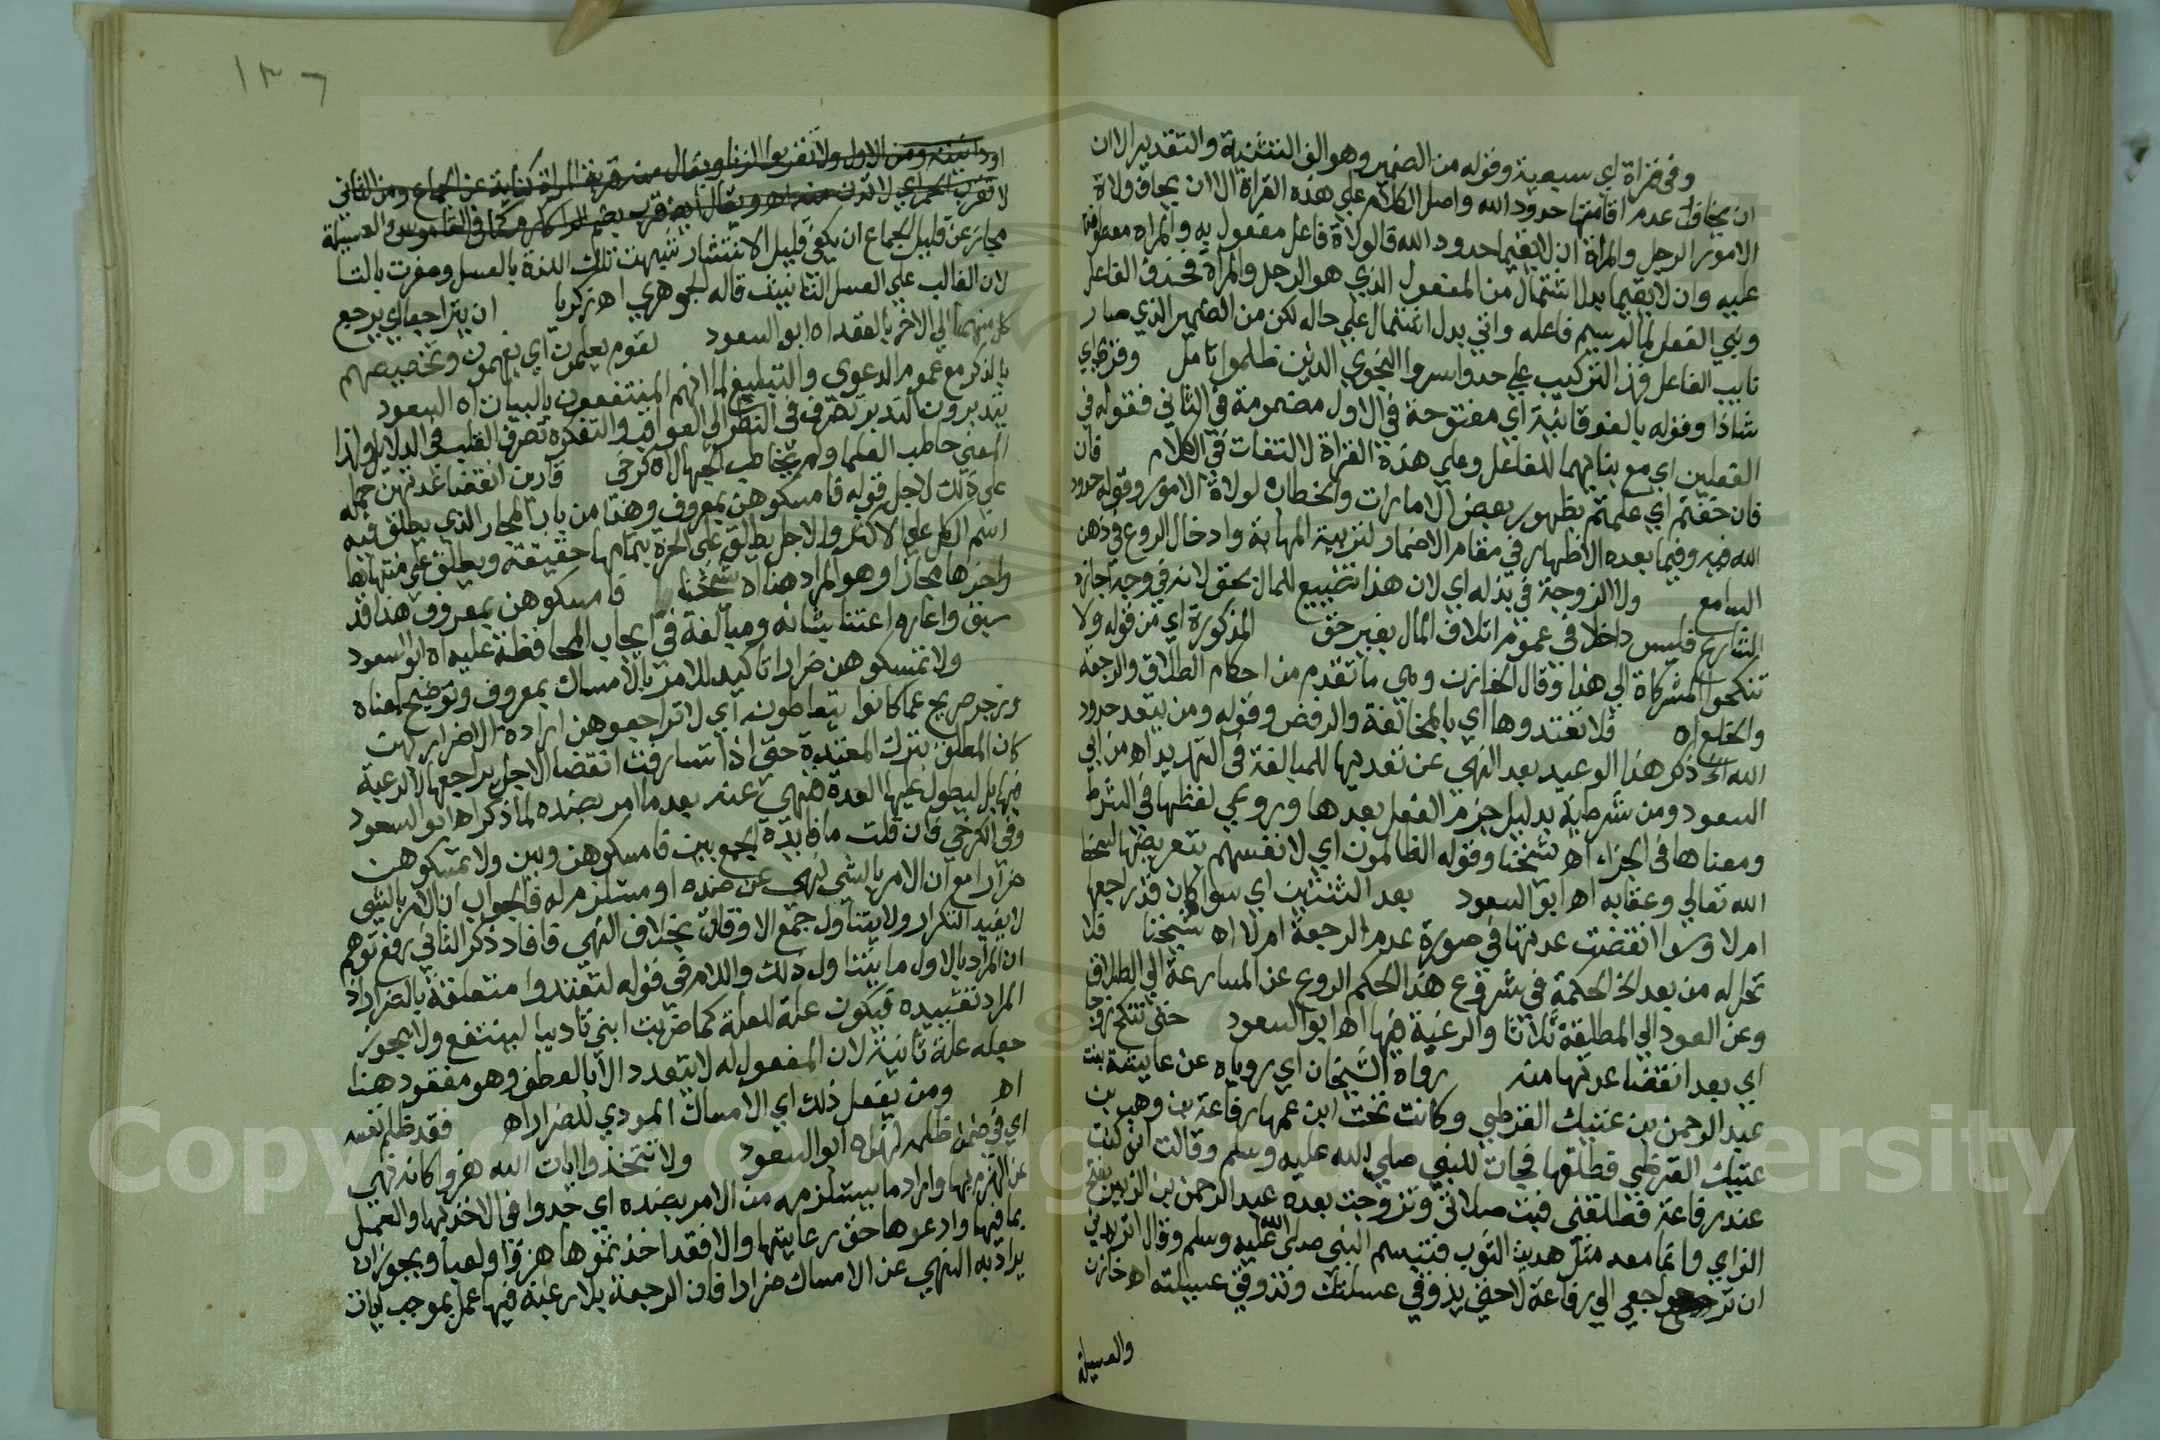 وفي قراة اي سبعية وقوله من الضمير وهو الف التثنية والتقدير الا ان
ان يخافا عدم اقامتهما حدود الله واصل الكلام علي هذه القراة الا ان يخاف ولاة
الامور الرجل والمراة ان لا يقيما حدود الله فالولاة فاعل مفعول به والمراه معطوفة
عليه وان لا يقيما بدل اشتمال من المفعول الذي هو الرجل والمراة فحذف الفاعل
وبني الفعل لما لم يسم فاعله واتي بدل اشتمال علي حاله لكن من الضمير الذي صار
نايب الفاعل فهذا التركيب علي حد واسروا النجوي الذين ظلموا تامل وقري اي
شاذا وقوله بالفوقانية اي مفتوحة في الاول مضمومة في الثاني فقوله في
الفعلين اي مع بنايهما للفاعل وعلي هذه القراة لا التفات في الكلام فان
فان خفتم اي علمتم بظهور بعض الامارات والخطاب لولاة الامور وقوله حدود
الله فيه وفيما بعده الاظهار في مقام الاضمار لتربية المهابة وادخال الروع في ذهن
السامع ولا الزوجة في بذله اي لان هذا تضييع للمال بحق لانه في وجه اجازه
الشارع فليس داخلا في عموم اتلاف المال بغير حق المذكورة اي من قوله ولا
تنكحوا المشركاة الي هذا وقال الخازن وهي ما تقدم من احكام الطلاق والرجعة
والخلع اه فلا تعتدوها اي بالمخالفة والرفض وقوله ومن يتعد حدود
الله الخ ذكر هذا الوعيد بعد النهي عن تعديها للمبالغة في التهديد اه من ابي
السعود ومن شرطية بدليل جزم الفعل بعدها وروعي لفظها في الشرط
ومعناها في الجزاء اه شيخنا وقوله الظالمون اي لانفسهم بتعريضها لسخط
الله تعالي وعقابه اه ابو السعود بعد الثنتين اي سوا كان قد راجعها
ام لا وسوا انقضت عدتها في صورة عدم الرجعة ام لا اه شيخنا فلا
تحل له من بعد الخ الحكمة في شروع هذا الحكم الروع عن المسارعة الي الطلاق
وعن العود الي المطلقة ثلاثا والرغبة فيها اه ابو السعود حتي تنكح زوجا
اي بعد انقضا عدتها منه رواه الشيخان اي روياه عن عايشة بنت
عبد الرحمن بن عتيك القرظي وكانت تحت ابن عمها رفاعة بن وهب بن
عتيك القرظي فطلقها فجات للنبي صلي الله عليه وسلم وقالت اني كنت
عند رفاعة فطلقني فبت طلاقي وتزوجت بعده عبد الرحمن بن الزبير بفتح
الزاي وانما معه مثل هدبة الثوب فتبسم النبي صلي الله عليه وسلم وقال اتريدين
ان ترجعي الي رفاعة لا حتي يذوق عسيلتك وتذوقي عسيلته اه خازن
والعسيلة
١٣٦
مجاز عن قليل الجماع ان يكفي قليل الانتشار شبهت تلك اللذة بالعسل وصغرت بالتا
لان الغالب علي العسل التانيث قاله الجوهري اه زكريا ان يتراجعا اي يرجع
كل منهما الي الاخر بالعقد اه ابو السعود لقوم يعلمون اي يفهمون وتخصيصهم
بالذكر مع عموم الدعوي والتبليغ لما انهم المنتفعون بالبيان اه السعود
يتدبرون التدبر تصرف في النظر الي العواقب والتفكر تصرف القلب في الدلايل ولذا
المعني خاطب العلما ولم يخاطب الجهال اه كرخي قاربن انقضا عدتهن حمله
علي ذلك لاجل قوله فامسكوهن بمعروف وهذا من باب المجاز الذي يطلق فيه
اسم الكل علي الاكثر والاجل يطلق علي المدة بتمامها حقيقة ويطلق علي منتهاها
واخرها مجازا وهو المراد هنا اه شيخنا فامسكوهن بمعروف هذا قد
سبق واعاره اعتنا بشانه ومبالغة في ايجاب المحافظة عليه اه ابو السعود
ولا تمسكوهن ضرارا تاكيد للامر بالامساك بمعروف وتوضيح لمعناه
وزجر صريح عما كانوا يتعاطونه اي لا تراجعوهن ارادة الاضرار بهن
كان المطلق يترك المعتدة حتي اذا شارفت انقضا الاجل يراجعها لا لرغبة
فيها بل ليطول عليها العدة فنهي عنه بعد ما امر بضده لما ذكر اه ابو السعود
وفي الكرخي فان قلت ما فايدة الجمع بين فامسكوهن وبين ولا تمسكوهن
ضرارا مع ان الامر بالشي نهي عن ضده او مستلزم له فالجواب ان الامر بالشي
لا يفيد التكرار ولا يتناول جميع الاوقات بخلاف النهي فافاد ذكر الثاني رفع توهم
ان المراد بالاول ما يتناول ذلك واللام في قوله لتعتدوا متعلقة بالضرار اذ
المراد تقييده فيكون علة للعلة كما ضربت ابني تاديبا لينتفع ولا يجوز
جعله علة ثانية لان المفعول له لا يتعدد الا بالعطف وهو مفقود هنا
اه ومن يفعل ذلك اي الامساك المودي للضرار اه فقد ظلم نفسه
اي في ضمن ظلمه لهن اه ابو السعود ولا تتخذوا ايات الله هزوا كانه نهي
عن الهزء بها واراد ما يستلزمه من الامر بضده اي جدوا في الاخذ بها والعمل
بما فيها وارعوها حق رعايتها والا فقد اخذتموها هزوا ولعبا ويجوز ان
يراد به النهي عن الامساك ضرارا فان الرجعة بلا رغبة فيها عمل بموجب ايات
Copyright © King Saud University